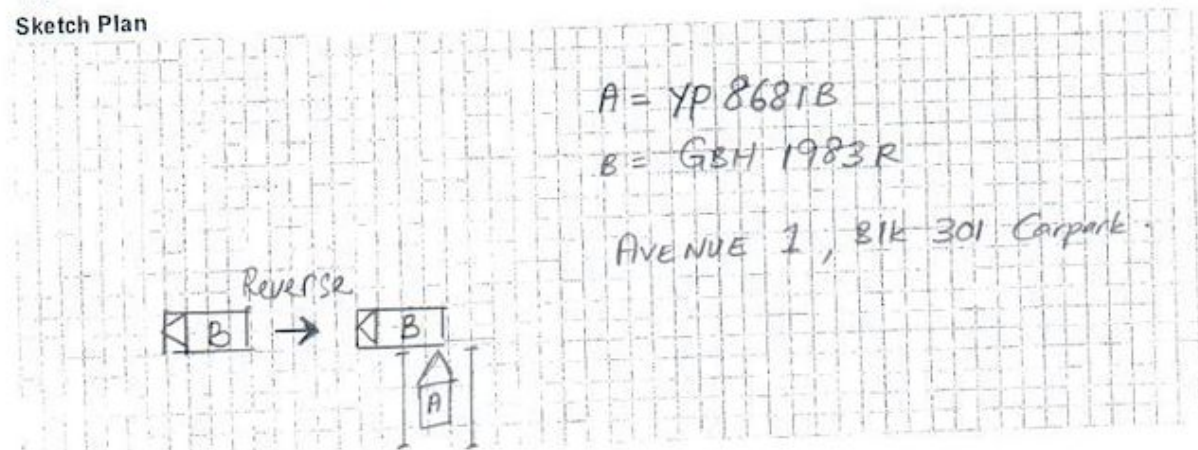 Sketch Plan
A = YP 8681B
B = GBH 1983R
AVENUE 1, Blk 301 Carpark.
Reverse
B → B
A